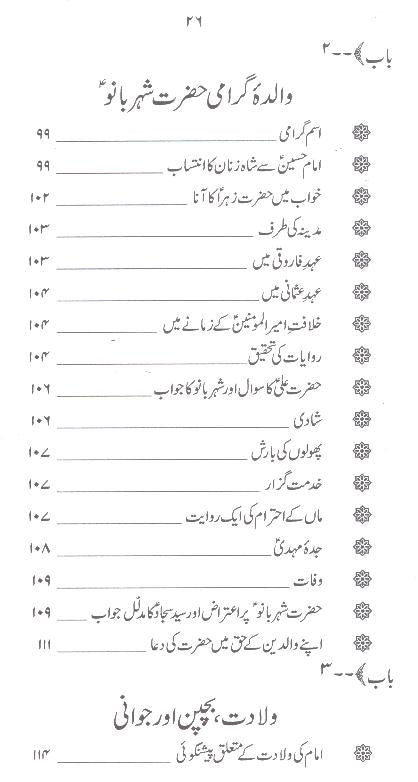 ۲۶
باب ﴾--۲
والدۂ گرامی حضرت شہر بانوؑ
اسم گرامی ۹۹
امام حسینؑ سے شاہ زنان کا انتساب ۹۹
خواب میں حضرت زہراؑ کا آنا ۱۰۲
مدینہ کی طرف ۱۰۳
عہدِ فاروقی میں ۱۰۳
عہدِ عثمانی میں ۱۰۴
خلافتِ امیر المومنینؑ کے زمانے میں ۱۰۴
روایات کی تحقیق ۱۰۴
حضرت علیؑ کا سوال اور شہر بانو کا جواب ۱۰۶
شادی ۱۰۶
پھولوں کی بارش ۱۰۷
خدمت گزار ۱۰۷
ماں کے احترام کی ایک روایت ۱۰۷
جدۂ مہدیؑ ۱۰۸
وفات ۱۰۹
حضرت شہر بانوؑ پر اعتراض اور سید سجادؑ کا مدلّل جواب ۱۰۹
اپنے والدین کے حق میں حضرت کی دعا ۱۱۱
باب ﴾--۳
ولادت، بچپن اور جوانی
امام کی ولادت کے متعلق پیشنگوئی ۱۱۴